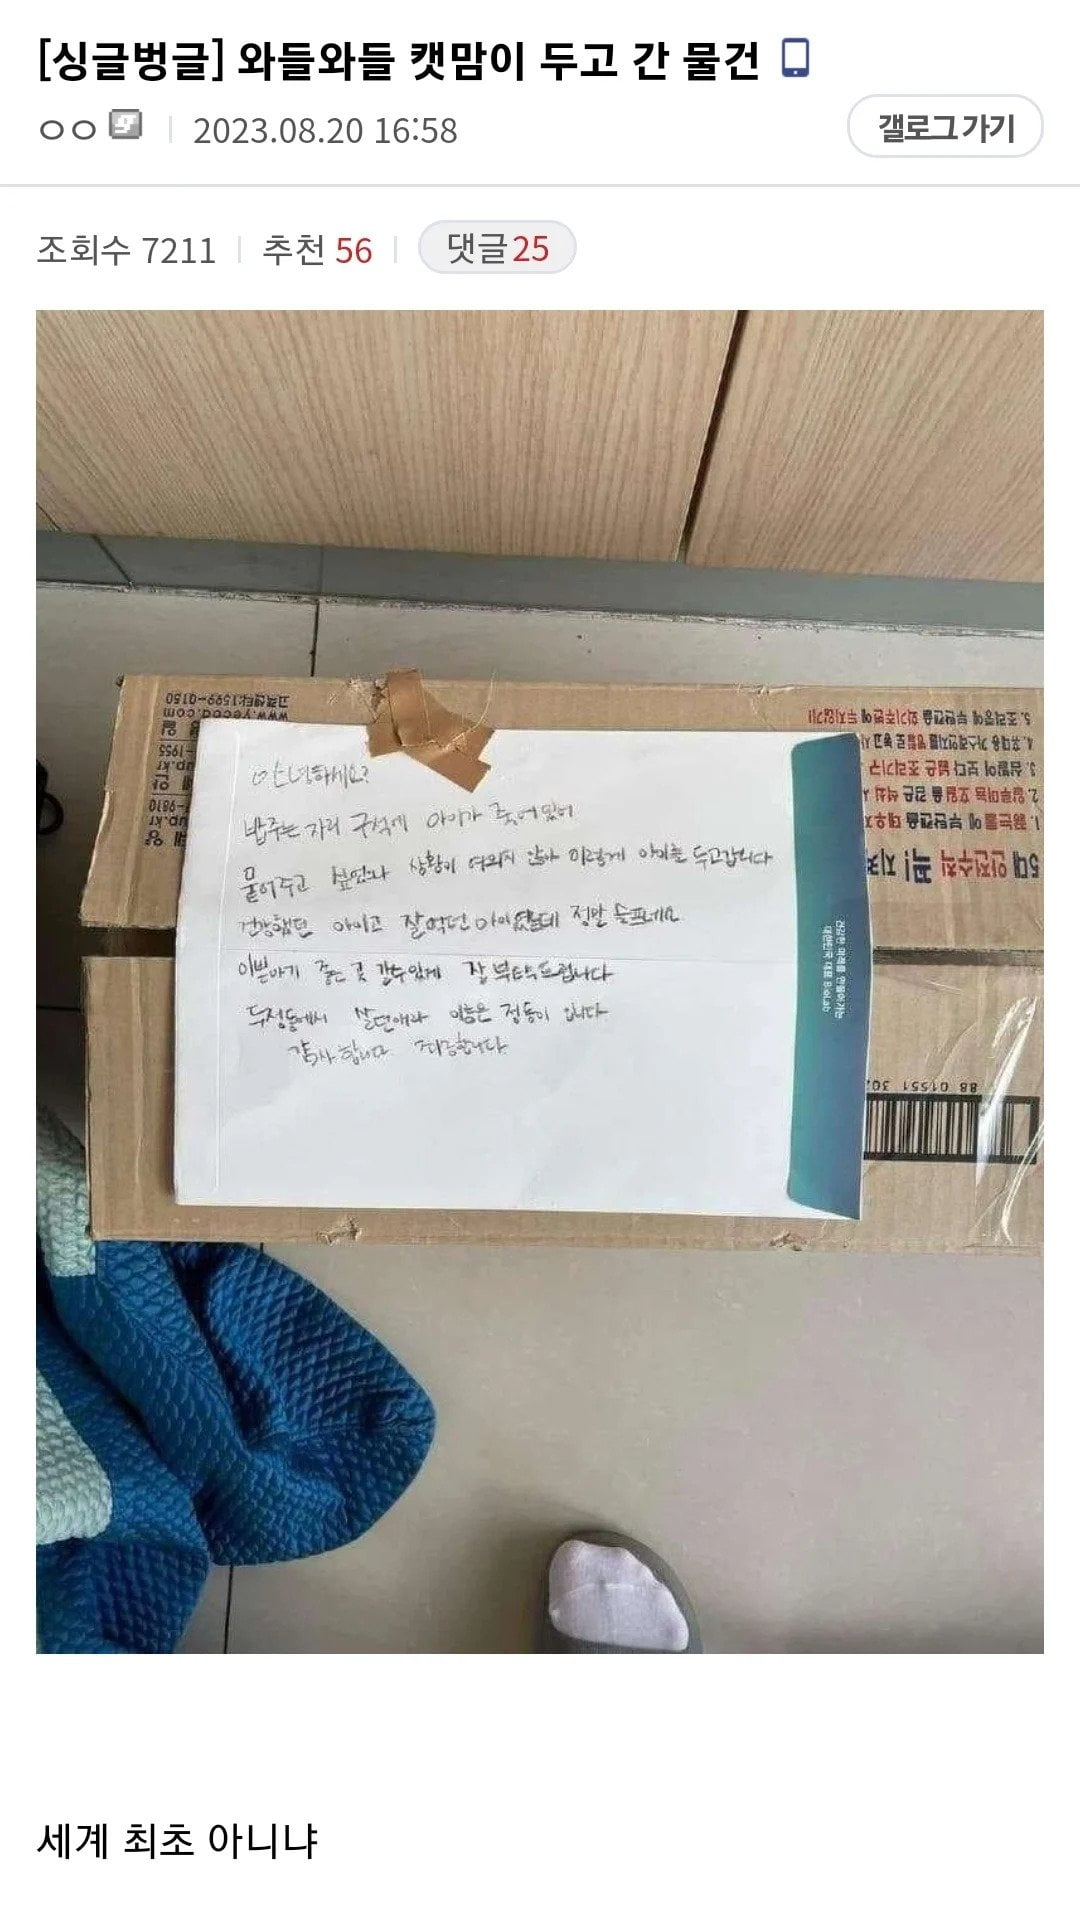 [싱글벙글] 와들와들 캣맘이 두고 간 물건
ㅇㅇ
2023.08.20 16:58
갤로그 가기
조회수 7211
추천 56
댓글 25
고객센터:1599-0150
5대 안전수칙 꼭! 지켜
안녕하세요?
밥주는 자리 구석에 아이가 죽어있어
묻어주고 싶었으나 상황이 여의치 않아 이렇게 아이를 두고갑니다
건강했던 아이고 잘먹던 아이였는데 정말 슬프네요
이쁜아기 좋은 곳 갈수있게 잘 부탁드립니다
두정동에서 살던애라 이름은 정동이 입니다
감사합니다 죄송합니다
건강한 미래를 만들어가는
88 01551 30
세계 최초 아니냐